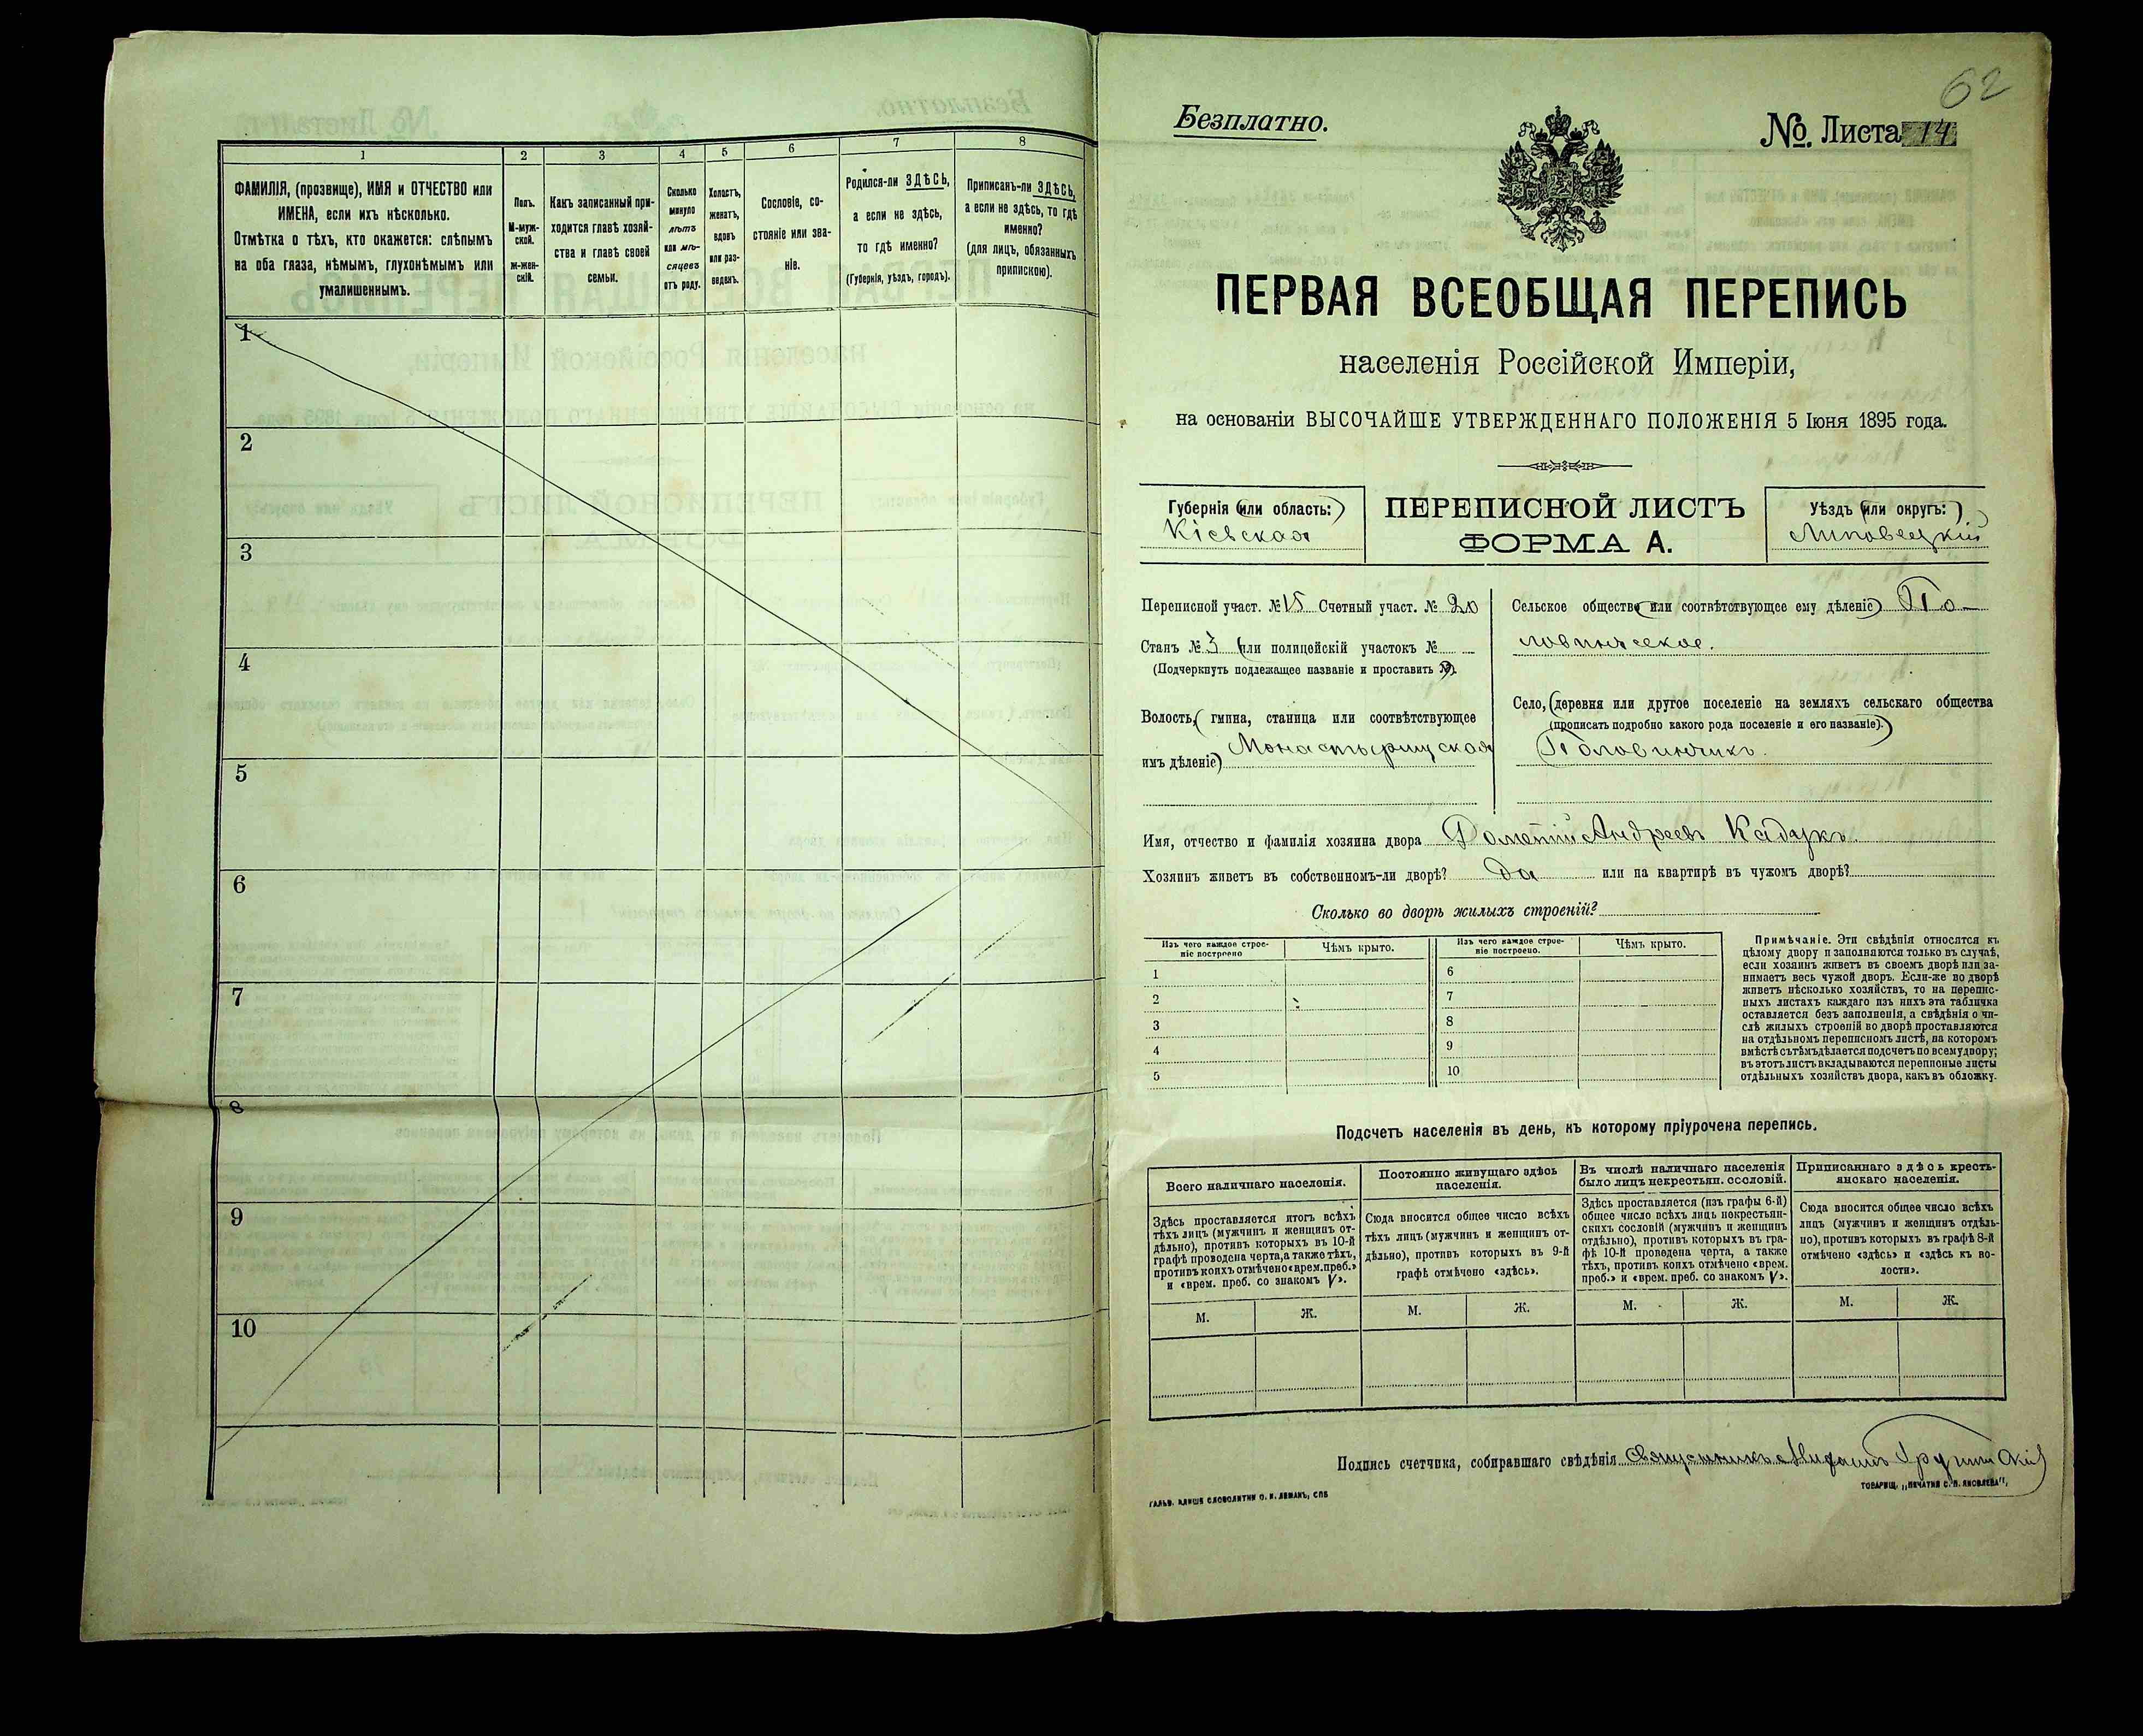 1 2 3 4 5 6 7 8
ФАМИЛІЯ, (прозвище), ИМЯ и ОТЧЕСТВО или
ИМЕНА, если ихъ нѣсколько.
Отмѣтка о тѣхъ, кто окажется: слѣпымъ
на оба глаза, нѣмымъ, глухонѣмымъ или
умалишеннымъ.
Полъ.
М-муж-
ской.
ж-жен-
скій.
Какъ записанный при-
ходится главѣ хозяй-
ства и главѣ своей
семьи.
Сколько
минуло
лѣтъ
или мѣ-
сяцевъ
отъ роду.
Холостъ,
женатъ,
вдовъ
или раз-
веденъ.
Сословіе, со-
стояніе или зва-
ніе.
Родился-ли ЗДѢСЬ,
а если не здѣсь,
то гдѣ именно?
(Губернія, уѣздъ, городъ).
Приписанъ-ли ЗДѢСЬ,
а если не здѣсь, то гдѣ
именно?
(для лицъ, обязанныхъ
припискою).
1
2
3
4
5
6
7
8
9
10
62
Безплатно.
№ Листа 14
ПЕРВАЯ ВСЕОБЩАЯ ПЕРЕПИСЬ
населенія Россійской Имперіи,
на основаніи ВЫСОЧАЙШЕ УТВЕРЖДЕННАГО ПОЛОЖЕНІЯ 5 Іюня 1895 года.
Губернія (или область:)
Кіевская
ПЕРЕПИСНОЙ ЛИСТЪ
ФОРМА А.
Уѣздъ (или округъ:)
Липовецкій
Переписной участ. № 15 Счетный участ. № 20
Станъ № 3 (или полицейскій участокъ №
(Подчеркнуть подлежащее названіе и проставить №).
Волость, (гмина, станица или соотвѣтствующее
имъ дѣленіе) Монастырищская
Сельское общество (или соотвѣтствующее ему дѣленіе) Го-
ловинчское.
Село, (деревня или другое поселеніе на земляхъ сельскаго общества
(прописать подробно какого рода поселеніе и его названіе).)
Головинчикъ.
Имя, отчество и фамилія хозяина двора Дометій Андреевъ Кадукъ.
Хозяинъ живетъ въ собственномъ-ли дворѣ? Да или на квартирѣ въ чужомъ дворѣ?
Сколько во дворѣ жилыхъ строеній?
Изъ чего каждое строе-
ніе построено
Чѣмъ крыто.
Изъ чего каждое строе-
ніе построено.
Чѣмъ крыто.
1 6
2 7
3 8
4 9
5 10
Примѣчаніе. Эти свѣдѣнія относятся къ
цѣлому двору и заполняются только въ случаѣ,
если хозяинъ живетъ въ своемъ дворѣ или за-
нимаетъ весь чужой дворъ. Если-же во дворѣ
живетъ нѣсколько хозяйствъ, то на перепис-
ныхъ листахъ каждаго изъ нихъ эта табличка
оставляется безъ заполненія, а свѣдѣнія о чи-
слѣ жилыхъ строеній во дворѣ проставляются
на отдѣльномъ переписномъ листѣ, на которомъ
вмѣстѣ съ тѣмъ дѣлается подсчетъ по всему двору;
въ этотъ листъ вкладываются переписные листы
отдѣльныхъ хозяйствъ двора, какъ въ обложку.
Подсчетъ населенія въ день, къ которому пріурочена перепись.
Всего наличнаго населенія.
Здѣсь проставляется итогъ всѣхъ
тѣхъ лицъ (мужчинъ и женщинъ от-
дѣльно), противъ которыхъ въ 10-й
графѣ проведена черта, а также тѣхъ,
противъ коихъ отмѣчено «врем. преб.»
и «врем. преб. со знакомъ V».
Постоянно живущаго здѣсь
населенія.
Сюда вносится общее число всѣхъ
тѣхъ лицъ (мужчинъ и женщинъ от-
дѣльно), противъ которыхъ въ 9-й
графѣ отмѣчено «здѣсь».
Въ числѣ наличнаго населенія
было лицъ некрестьян. сословій.
Здѣсь проставляется (изъ графы 6-й)
общее число всѣхъ лицъ некрестьян-
скихъ сословій (мужчинъ и женщинъ
отдѣльно), противъ которыхъ въ гра-
фѣ 10-й проведена черта, а также
тѣхъ, противъ коихъ отмѣчено «врем.
преб.» и «врем. преб. со знакомъ V».
Приписаннаго здѣсь кресть-
янскаго населенія.
Сюда вносится общее число всѣхъ
лицъ (мужчинъ и женщинъ отдѣль-
но), противъ которыхъ въ графѣ 8-й
отмѣчено «здѣсь» и «здѣсь къ во-
лости».
М. Ж. М. Ж. М. Ж. М. Ж.
Подпись счетчика, собиравшаго свѣдѣнія
ГАЛЬВ. КЛИШЕ СЛОВОЛИТНИ О. И. ЛЕМАНЪ, СПБ
ТОВАРИЩ. „ПЕЧАТНЯ С. П. ЯКОВЛЕВА",